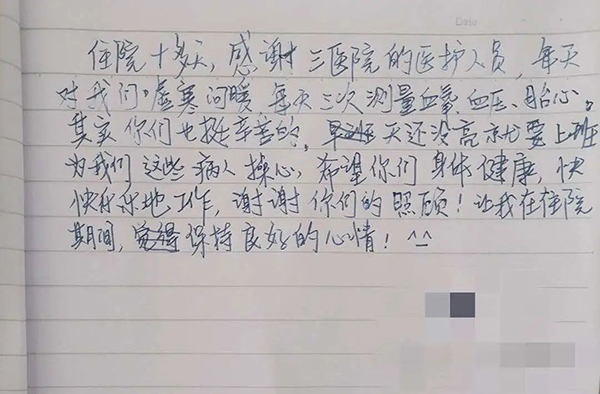 Date
住院十多天，感谢三医院的医护人员，每天
对我们嘘寒问暖，每天三次测量血氧、血压、胎心，
其实你们也挺辛苦的，天还没亮就要上班
为我们这些病人操心，希望你们身体健康，快
快乐乐地工作，谢谢你们的照顾！让我在住院
期间，保持良好的心情！^^